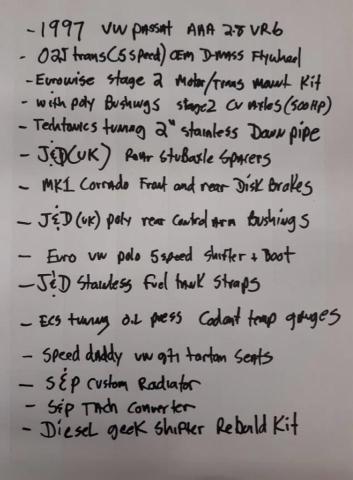 - 1997 VW PASSAT AAA 2.8 VR6
- 02J trans (5 speed) OEM D-mass Flywheel
- Eurowise stage 2 Motor/Trans mount Kit
- with poly Bushings stage 2 CV Axles (500HP)
- Techtonics tuning 2" stainless Down pipe
- J&D (UK) Rear StubAxle Spacers
- MK1 Corrado Front and rear Disk Brakes
- J&D (UK) poly rear Control Arm Bushings
- Euro vw polo 5 speed shifter + Boot
- J&D Stainless Fuel tank Straps
- ECS tuning oil press Coolant temp gauges
- Speed daddy vw gti tartan Seats
- S&P Custom Radiator
- S&P Tach Converter
- Diesel geek Shifter Rebuild Kit